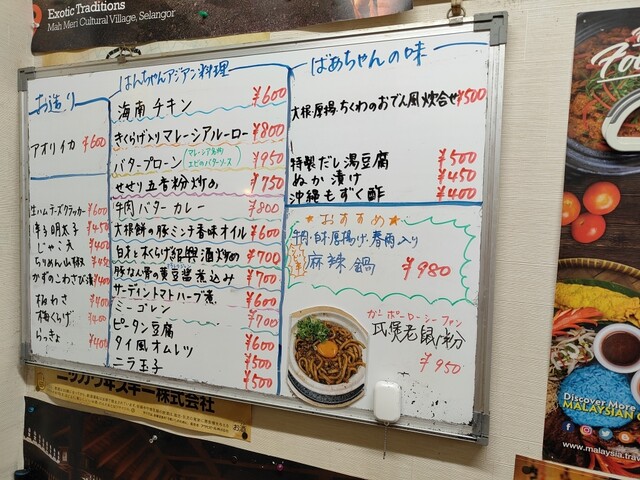 Exotic Traditions
Mah Meri Cultural Village, Selangor
お造り
アオリイカ ¥600
生ハムチーズクラッカー ¥600
辛子明太子 ¥450
じゃこ天 ¥400
ちりめん山椒 ¥450
かずのこわさび漬 ¥400
板わさ ¥400
梅くらげ ¥400
らっきょ ¥400
ばんちゃんアジアン料理
海南チキン ¥600
きくらげ入りマレーシアルーロー ¥800
バタープローン マレーシア名物 エビのバターソース ¥950
せせり五香粉炒め ¥750
牛肉バターカレー ¥800
大根餅の豚ミンチ香味オイル ¥600
白才と木くらげ紹興酒炒め ¥700
豚なん骨の黄豆醤煮込み ¥700
サーディントマトハーブ煮 ¥600
ミーゴレン ¥700
ピータン豆腐
タイ風オムレツ ¥600
ニラ玉子 ¥500
¥500
ばあちゃんの味
大根厚揚ちくわのおでん風炊合せ ¥500
特製だし湯豆腐 ¥500
ぬか漬け ¥450
沖縄もずく酢 ¥400
★おすすめ★
牛肉・白才・厚揚げ・春雨入り
麻辣鍋 ¥980
ガーポーローシーファン
瓦煲老鼠粉
¥950
ニッカウヰスキー株式会社
Discover More
MALAYSIAN
www.malaysia.trav